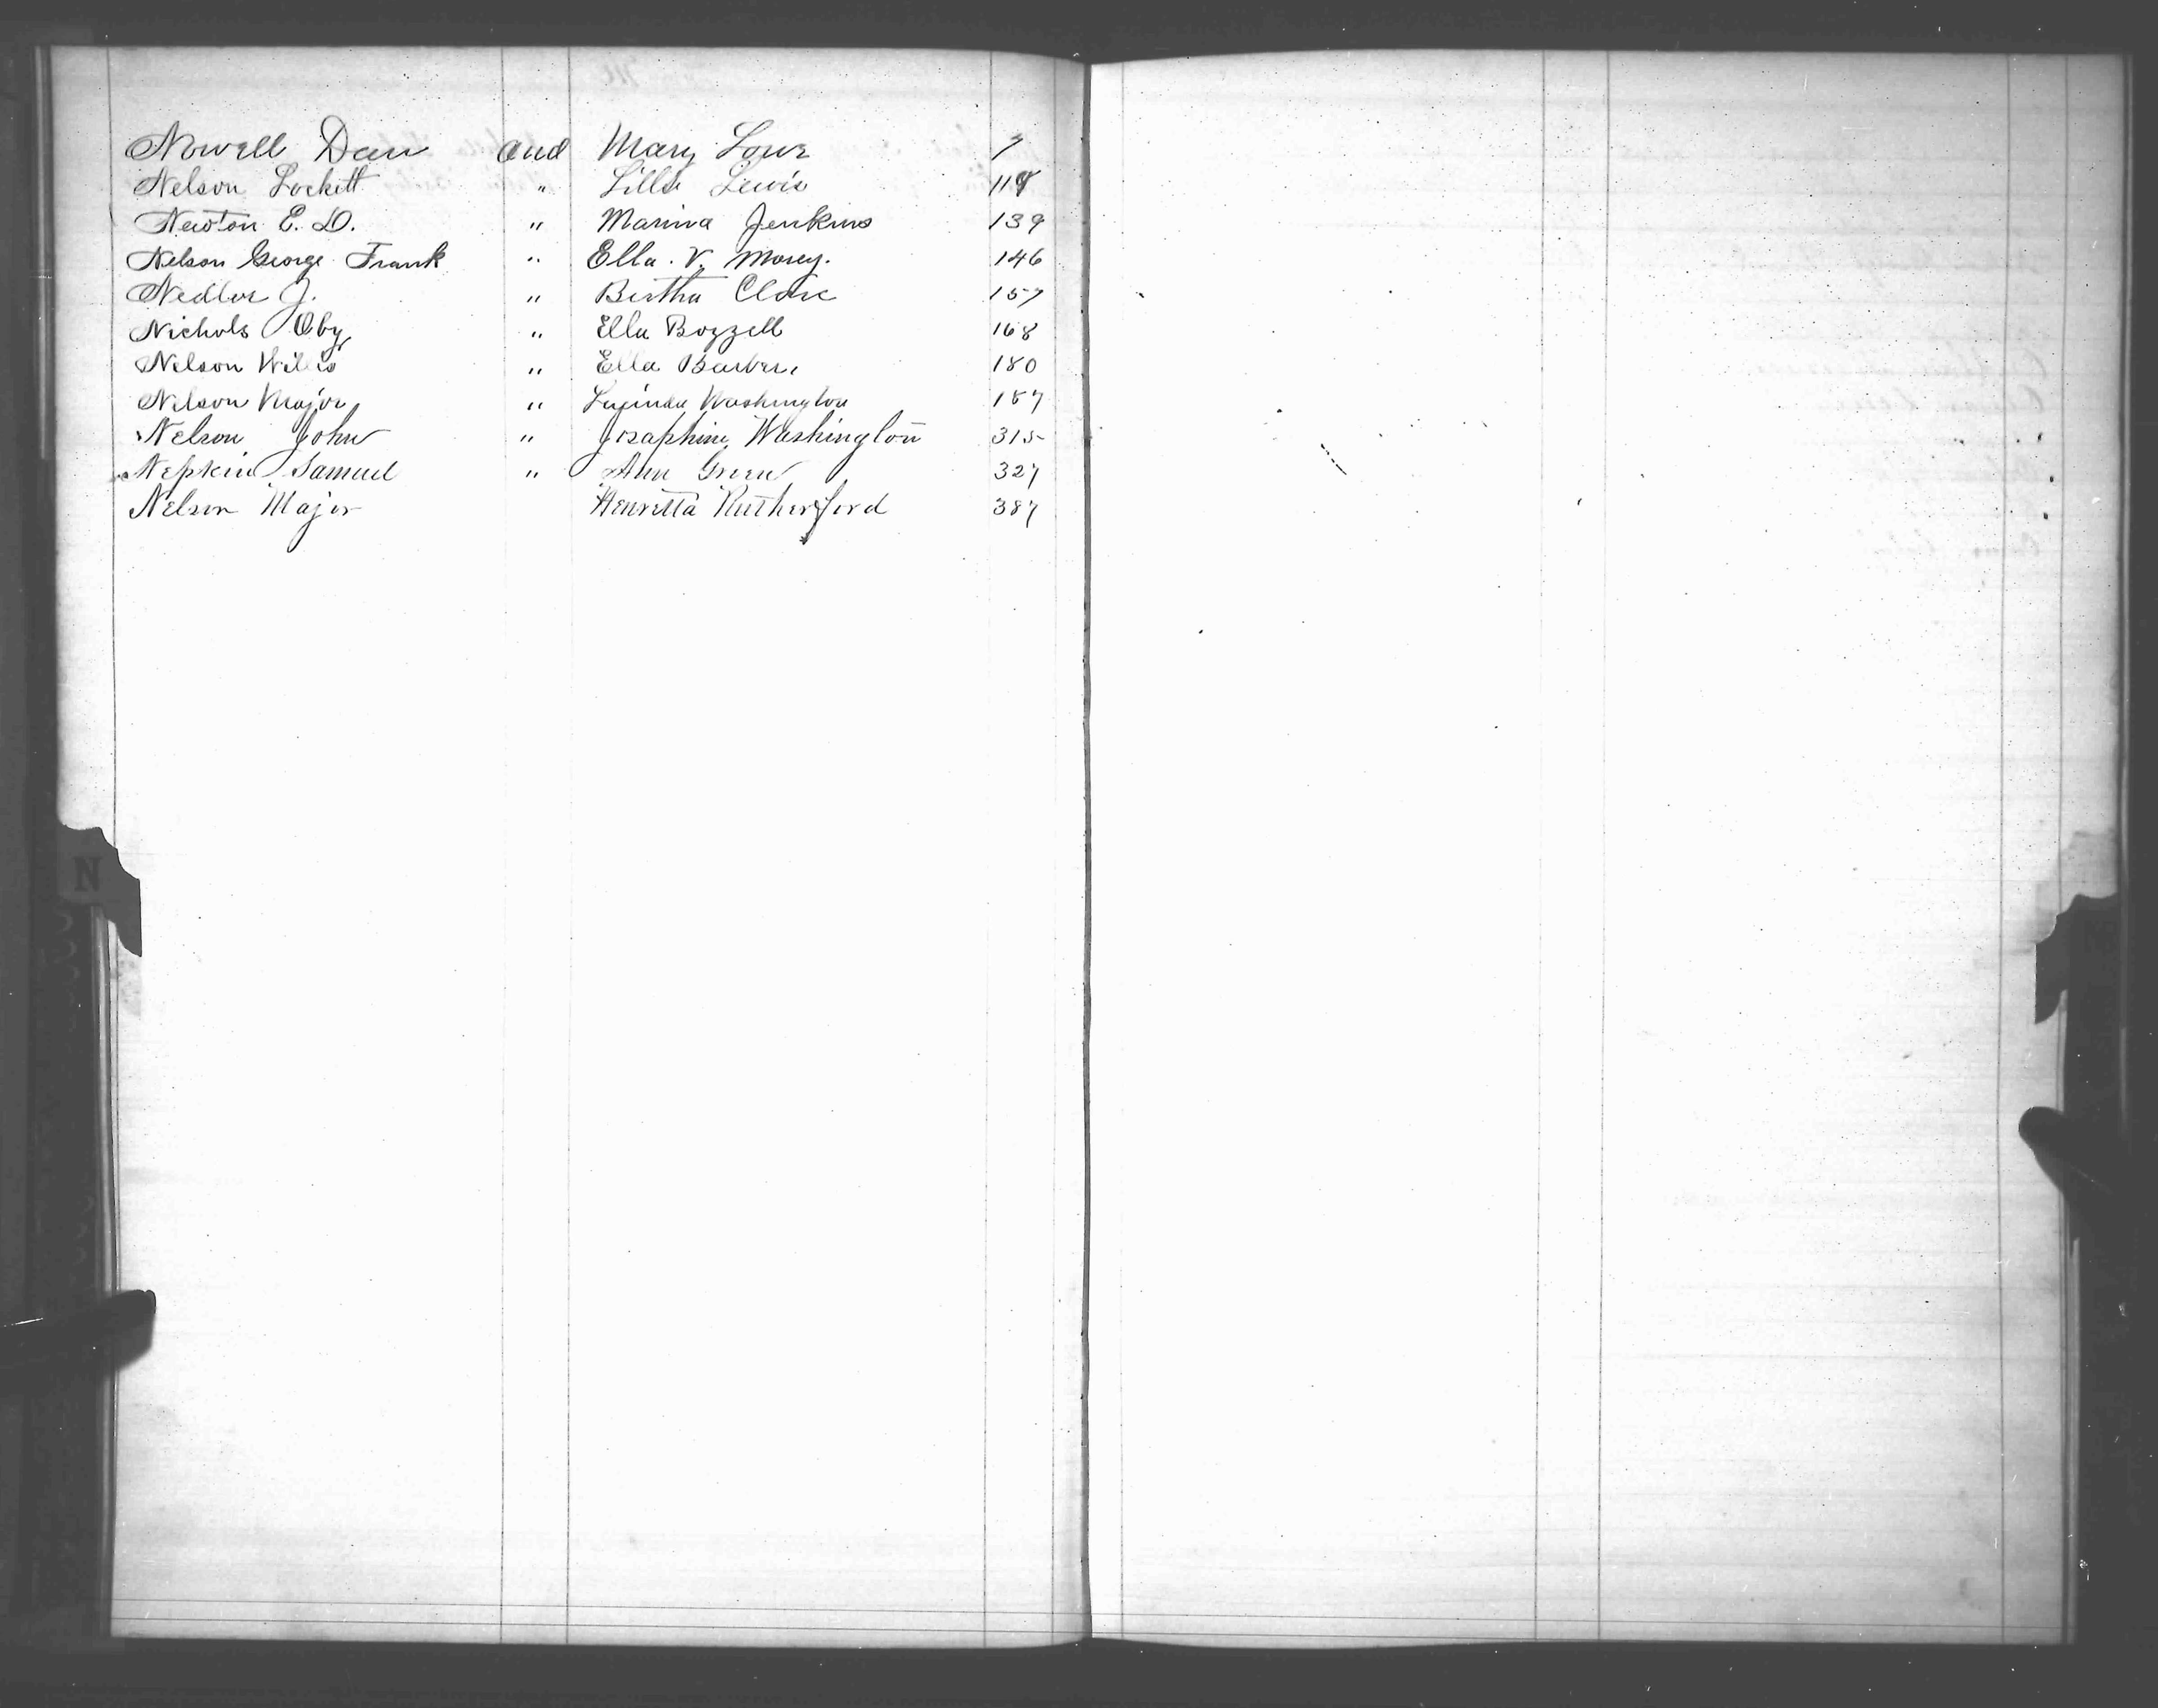 Nowell Dan and Mary Lowe 7
Nelson Lockett " Lewis
Newton E. D. " Marina Jenkins 139
Nelson George Frank " Ella. V. Morey. 146
Nedlor J. " Bertha Clark 157
Nichols Oby " Ella Bozzell 168
Nelson Willis " Ella Barber, 180
Nelson Major " Washington 187
Nelson John " Josaphine Washington 315
Nepkin Samuel " Ann Green 327
Nelson Major Henrietta Rutherford 387
N